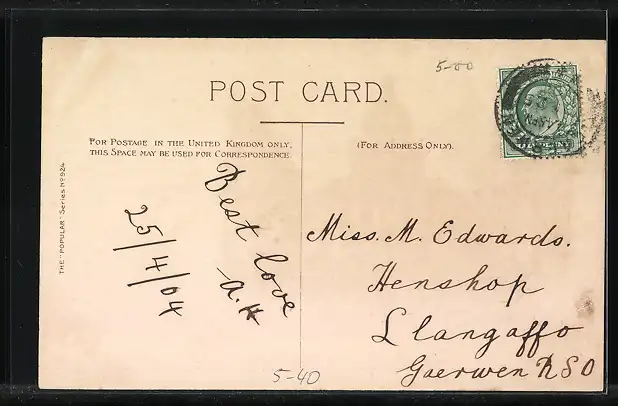 5-00
POST CARD.
FOR POSTAGE IN THE UNITED KINGDOM ONLY,
THIS SPACE MAY BE USED FOR CORRESPONDENCE.
(FOR ADDRESS ONLY).
THE "POPULAR" Series No 924
Best love
A.H
25/4/04
Miss. M. Edwards.
Henshop
Llangaffo
Gaerwen R S O
5-40